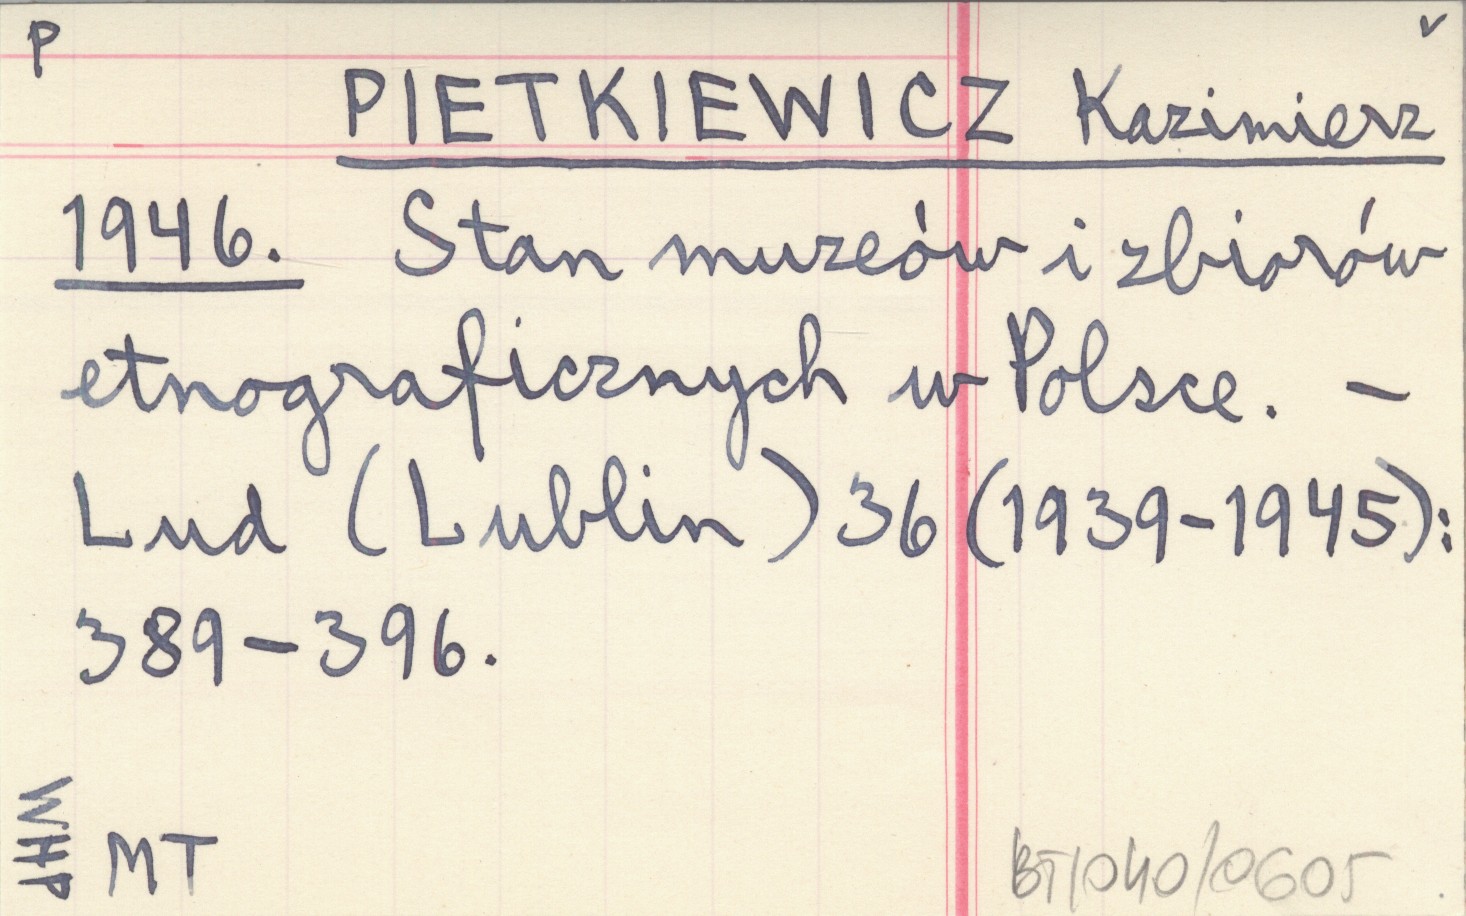 P v
PIETKIEWICZ Kazimierz
1946. Stan muzeów i zbiorów
etnograficznych w Polsce. –
Lud (Lublin) 36 (1939-1945):
389-396.
WHP
MT
BT/040/0605